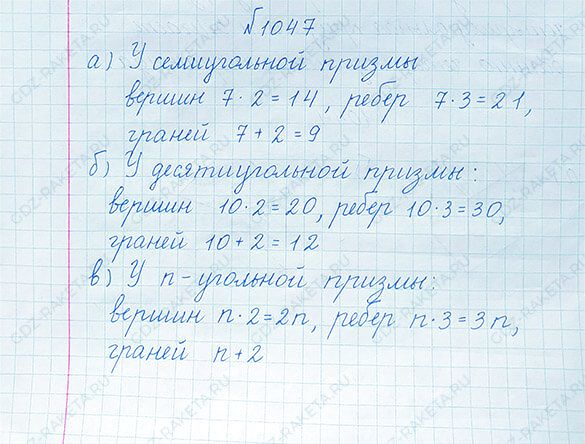 №1047
а) У семиугольной призмы
вершин 7·2=14, ребер 7·3=21,
граней 7+2=9
б) У десятиугольной призмы:
вершин 10·2=20, ребер 10·3=30,
граней 10+2=12
в) У n-угольной призмы:
вершин n·2=2n, ребер n·3=3n,
граней n+2